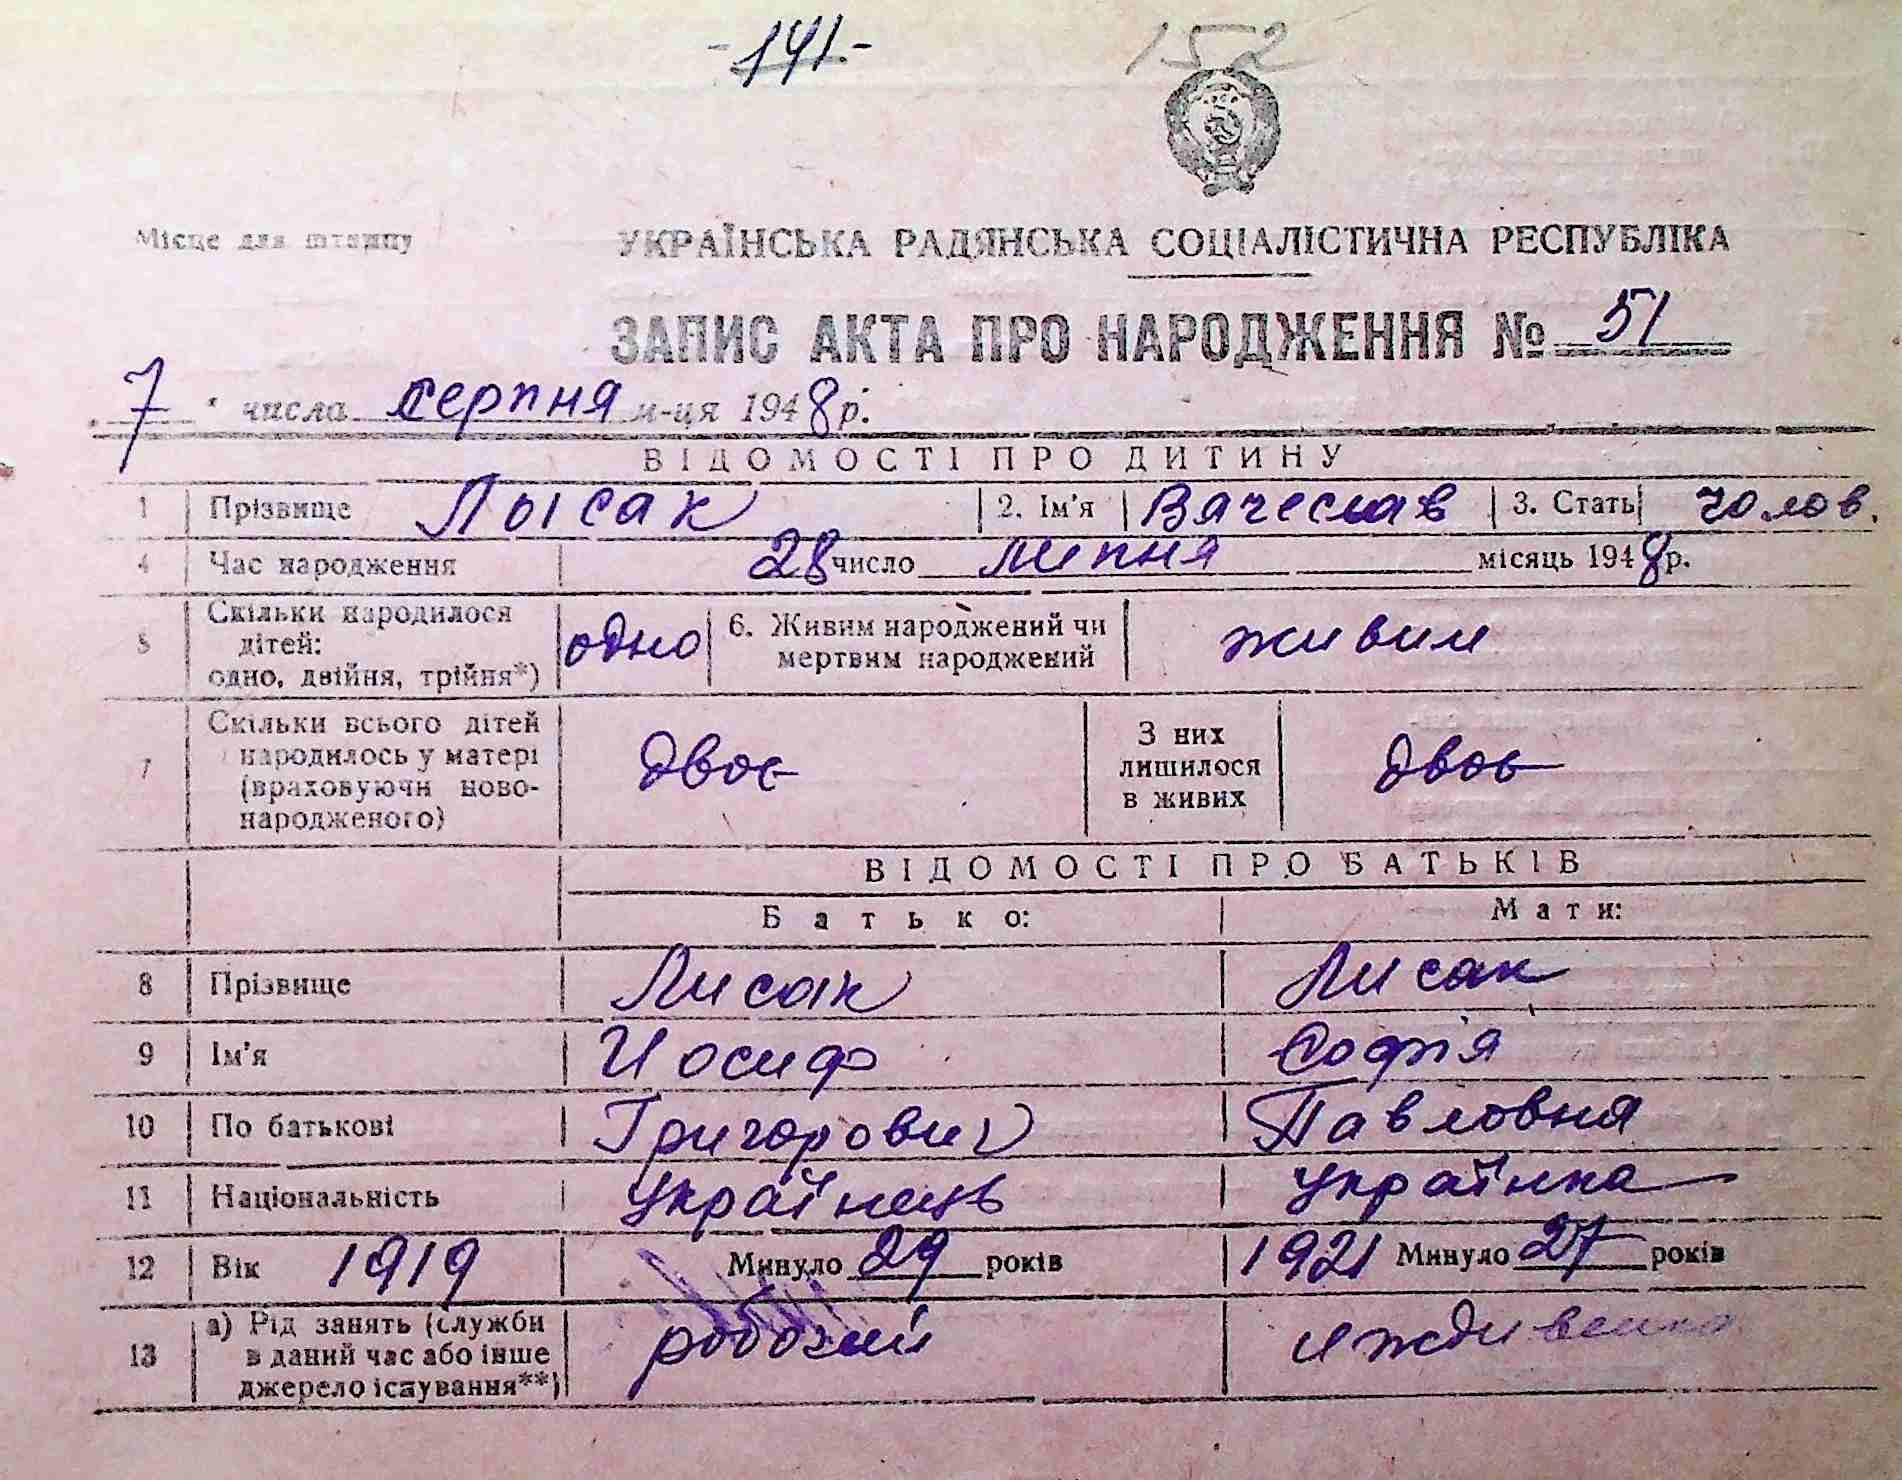 -141.-
152
Місце для штампу
УКРАЇНСЬКА РАДЯНСЬКА СОЦІАЛІСТИЧНА РЕСПУБЛІКА
ЗАПИС АКТА ПРО НАРОДЖЕННЯ № 51
7 числа серпня м-ця 1948 р.
ВІДОМОСТІ ПРО ДИТИНУ
1 Прізвище Лысак 2. Ім'я Вячеслав 3. Стать чолов.
4 Час народження 28 число липня місяць 1948 р.
5 Скільки народилося дітей: одно, двійня, трійня*) одно 6. Живим народжений чи мертвим народжений живим
7 Скільки всього дітей народилось у матері (враховуючи новонародженого) двоє З них лишилося в живих двоє
ВІДОМОСТІ ПРО БАТЬКІВ
Батько: Мати:
8 Прізвище Лисак Лисак
9 Ім'я Иосиф Софія
10 По батькові Григорович Павловня
11 Національність Українець Українка
12 Вік 1919 Минуло 29 років 1921 Минуло 27 років
13 а) Рід занять (служби в даний час або інше джерело існування**) робочий